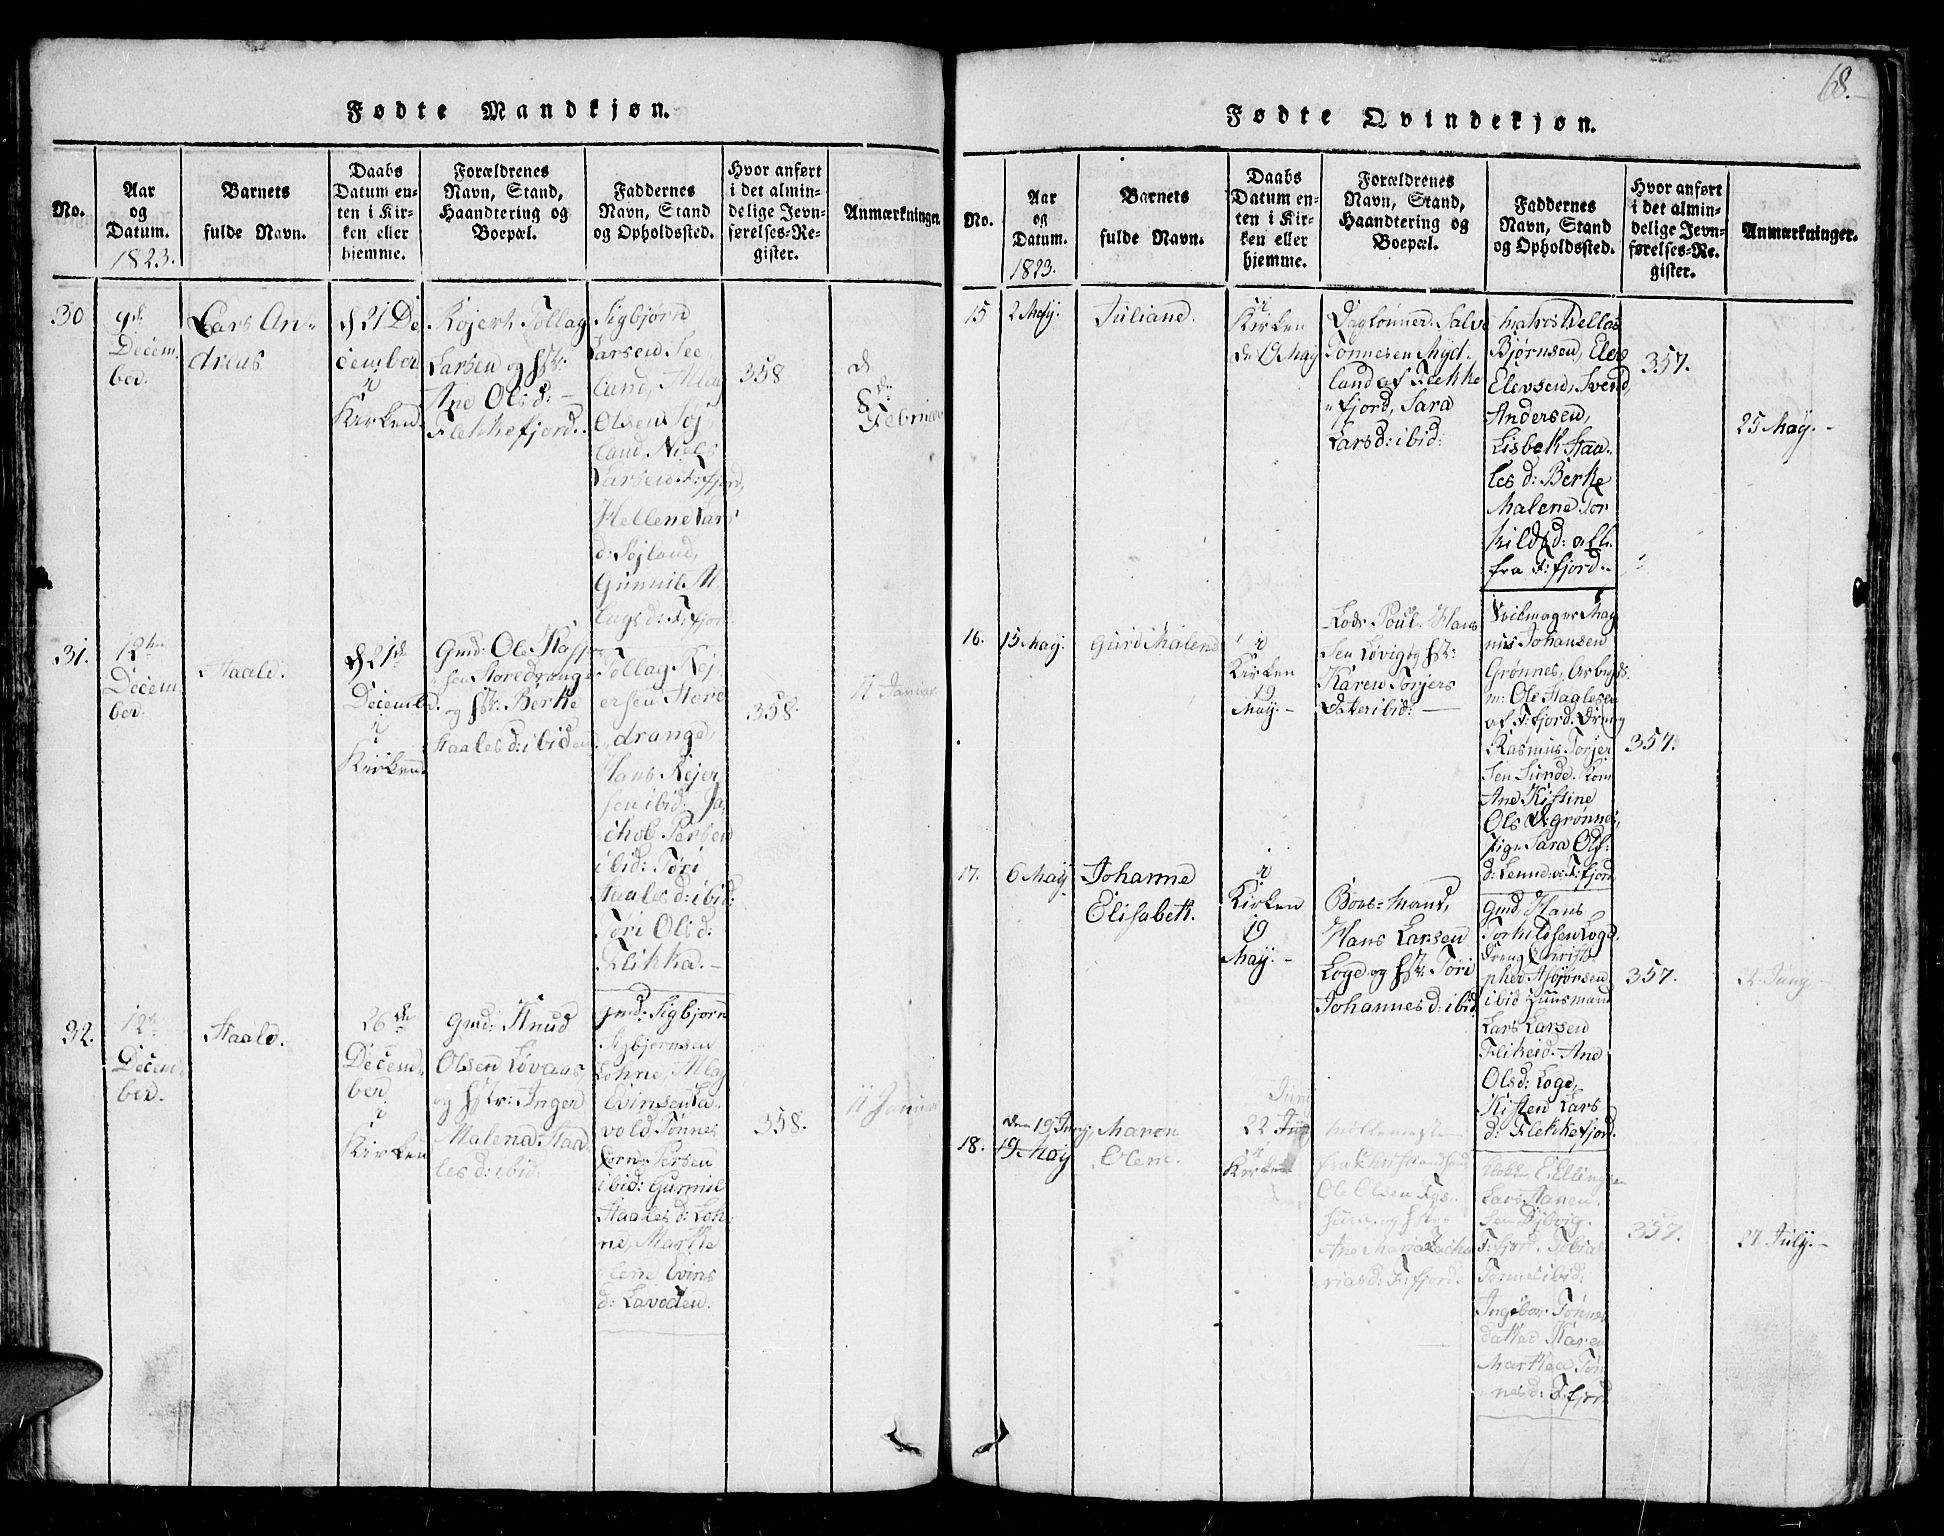 68.
Fødte Mandkjøn.
No.
Aar
og
Datum.
1823.
Barnets
fulde Navn.
Daabs
Datum en-
ten i Kir-
ken eller
hjemme.
Forældrenes
Navn, Stand,
Haandtering og
Boepæl.
Faddernes
Navn, Stand
og Opholdssted.
Hvor anført
i det almin-
delige Jevn-
førelses-Re-
gister.
Anmærkninger.
30
9de
Decem-
ber.
Lars An-
dreas
d 21 De
cember
i
Kirken.
Rejert Tollag
Larsen og hstr:
Ane Olsd: -
Flekkefjord.
Sigbjørn
Larsen See
land, Atlag
Olsen Søj
land, Niels
Larsen F:fjord,
Hellene Lars
d: Søjland,
Gunnil At
lagsd: F:fjor.
358
d
8de
Februar
31.
12te
Decem-
ber.
Staale.
d 21de
Decemb.
i
Kirken.
Gmd: Ole
sen Storedrange
og hstr: Berte
Staalesd: ibid
Tollag Rej
ersen Store
drange,
Hans Rejer
sen ibid: Ja
chob Persen
ibid: Tøri
Staalesd: ibid:
Tøri Olsd:
Flikka. -
358.
11 Januar.
32.
12te
Decem-
ber.
Staale.
26de
Decem-
ber
i
Kirken
Gmd: Knud
Olsen Løvaas,
og hstr: Inger
Malena Staa
lesd: ibid.
gmd: Sigbjørn
Sigbjørnsen
Lohne, Atlag
Evinsen La
vold Tønnes
Corns Persen
ibid: Gunnil
Staalesd: Loh
ne, Marthe
lene Evins
d: Lavolen.
358.
11 Januar
Fødte Qvindekjøn.
No.
Aar
og
Datum.
1823.
Barnets
fulde Navn.
Daabs
Datum en-
ten i Kir-
ken eller
hjemme.
Forældrenes
Navn, Stand,
Haandtering og
Boepæl.
Faddernes
Navn, Stand
og Opholdssted.
Hvor anført
i det almin-
delige Jevn-
førelses-Re-
gister.
Anmærkninger.
15
2 May.
Juliane.
i
Kirken
d 19 May
Daglønner Salve
Tønnesen Myd-
land af Flekke
fjord, Sara
Larsd: ibid:
Bjørnsen, Elevs
Elevsen, Svend
Andersen,
Lisbeth Staa-
lesd: Berte
Malene Tor
kildsd: alle
fra F:fjord.
357.
25 May. -
16.
15 May.
Gurd Malene
i
Kirken
19
May. -
Lods Poul Hans
sen Løvig og hstr:
Karen Torjers
datter ibid: -
Seilmager Mag
nus Johansen
Grønnes, Arbejds
m: Ole Staglesen
af F:fjord. Dreng
Rasmus Torjer
sen Sunde. Kone
Ane Kistine
Ols d. grønnes,
Pige Sara Ols
d: Lunde F:fjord
357.
17.
6 May
Johanne
Elisabeth.
i
Kirken
19
May. -
Boes-Mand,
Hans Larsen
Loge og hstr: Tøri
Johannesd: ibid.
gmd. Hans
Torkildsen Loge
Dreng Christo
pher Asbjørsen
ibid Huusmand
Lars Larsen
Flikeid. Ane
Olsd: Loge,
Kisten Lars
d: Flekkefjord.
357.
2 Juny -
18.
den 19 Juny
19 May
Maren
Olene.
Juny
22 July
i
Kirken
fra Christiansand
Ole Olsen
og hstr
Ane Maria Zacha
riasd: F:fjord.
Ellingsen
Lars Hanen
sen Dybvig.
F:fjord. Tobias
Tønnes ibid:
Ingebor Tønnes
datter Karen
Marthea Tøn
nesd: F:fjord
357.
27 July. -